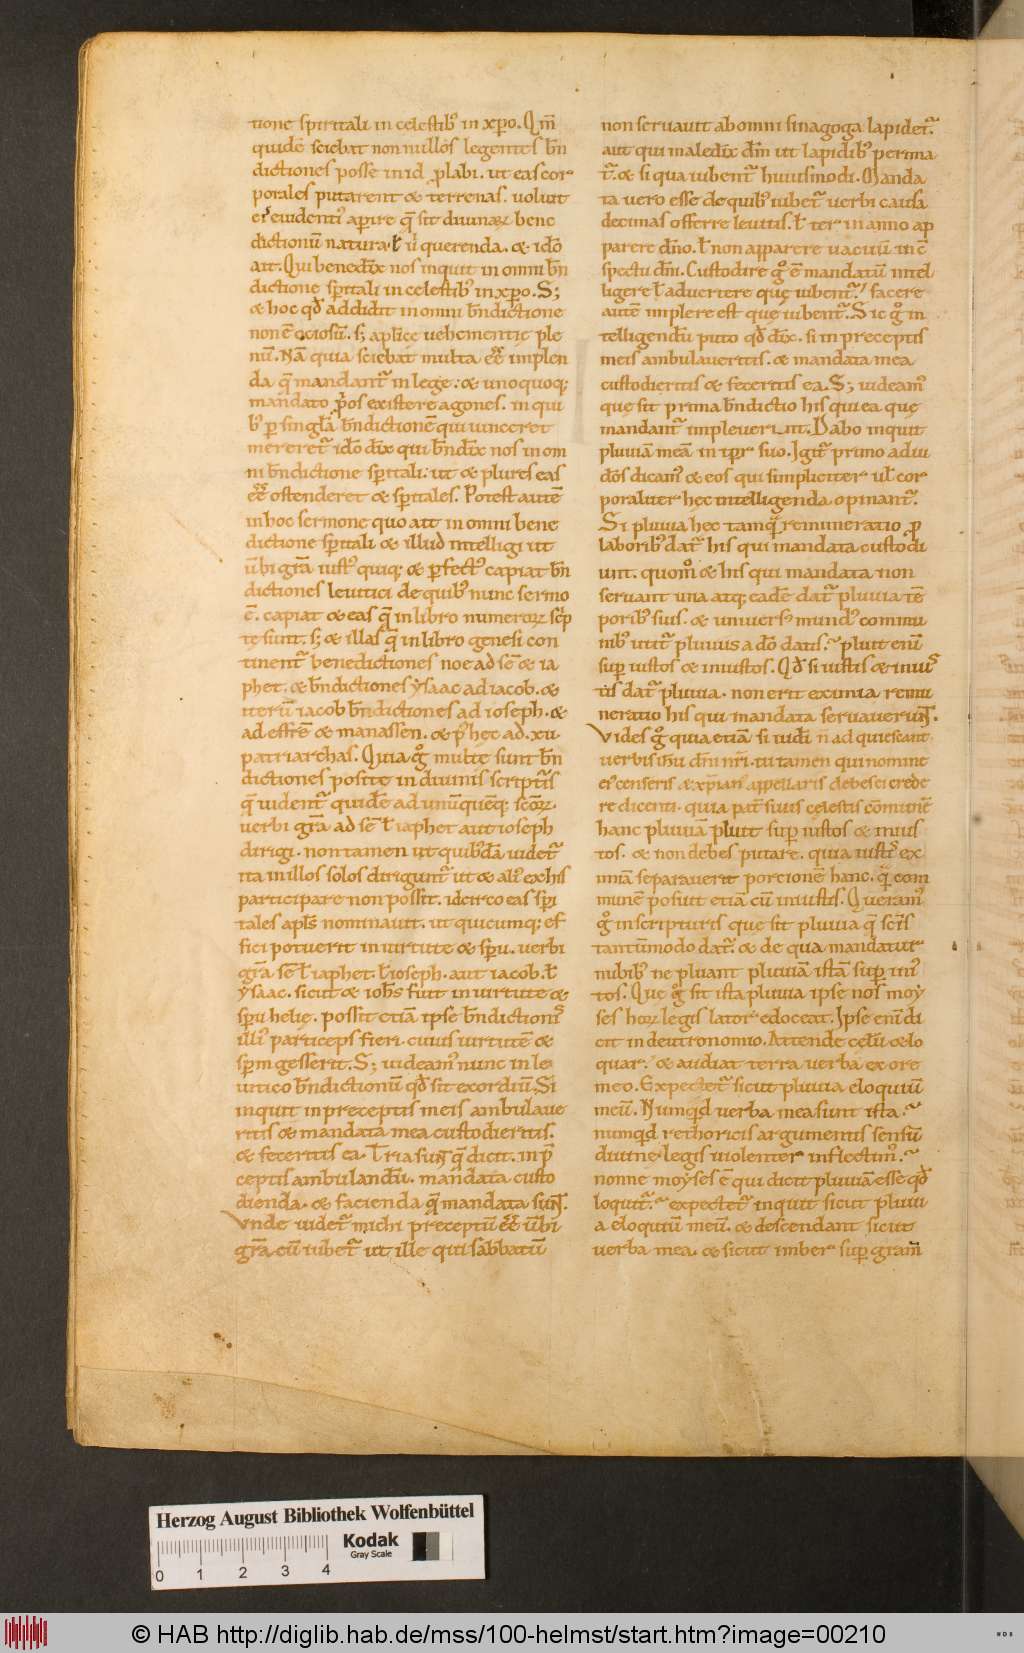 tione spiritali in celestib; in xpo. Qm̄
quidē sciebat non nullos legentes bn̄
dictiones posse in id plabi. ut eas cor
porales putarent & terrenas. uoluit
euidenti' apire q̄ sit diuinaꝝ bene
dictionū natura. ł ut querenda. & ido
ait. Qui benedix̄ nos inquit in omni bn̄
dictione sp̄itali in celestib; in xpo. S;
& hoc qd̄ addidit in omni bn̄dictione
non ē ociosū. s; aplice uehementie ple
nū. Nā quia sciebat multa ēē implen
da q̄ mandant̄ in lege: & unoquoq;
mandato p̄os existere agones. in qui
b; p singła bn̄dictionē qui uinceret
mereret̄ ido dix̄ qui bn̄dix̄ nos in om
ni bn̄dictione sp̄itali: ut & plures eas
ēē ostenderet & sp̄itales. Potest autē
in hoc sermone quo ait in omni bene
dictione sp̄itali & illud intelligi ut
ūbi grā iust' quiq; & pfect' capiat bn̄
dictiones leuitici de quib; nunc sermo
ē. capiat & eas q̄ in libro numeroꝝ scp̄
te sunt. s; & illas q̄ in libro genesi con
tinent̄ benedictiones noe ad sē & ia
phet. & bn̄dictiones ysaac ad iacob. &
iterū iacob bn̄dictiones ad ioseph. &
ad effrē & manassen. & p' hec ad. xii.
patriarchas. Quia gͦ multe sunt bn̄
dictiones posite in diuinis scripturis
q̄ uident̄ quidē ad unūquēq; scōꝝ.
uerbi grā ad sē ł iaphet aut ioseph
dirigi. non tamen ut quib'dā uidet̄
ita in illos solos dirigunt̄ ut & ali' ex his
participare non possit. idcirco eas sp̄i
tales apls nominauit. ut quicumq; ef
fici potuerit in uirtute & sp̄u. uerbi
grā sē ł iaphet. ł ioseph. aut iacob. ł
ysaac. sicut & iohs fuit in uirtute &
sp̄u helie. possit etiā ipse bn̄dictionis
illi' particeps fieri. cuius uirtutē &
sp̄m gesserit. S; uideam' nunc in le
uitico bn̄dictionū qd̄ sit exordiū. Si
inquit in preceptis meis ambulaue
ritis & mandata mea custodieritis.
& feceritis ea. Tria sunt q̄ dicit. in p̄
ceptis ambulandū. mandata custo
dienda. & facienda q̄ mandata sunt.
Vnde uidet̄ michi preceptū ēē ūbi
grā cū iubet̄ ut ille qui sabbatū
non seruauit ab omni sinagoga lapidet̄
aut qui maledix̄ dm̄ ut lapidib; perima
t̄. & si qua iubent̄ huiusmodi. Manda
ta uero esse de quib; iubet̄ uerbi causa
decimas offerre leuitis. ł ter in anno ap
parere dn̄o. ł non apparere uacuū in c̄
spectu dn̄i. Custodire gͦ ē mandatū intel
ligere ł aduertere que iubent̄. facere
autē implere est que iubent̄. Sic gͦ in
telligendū puto qd̄ dix̄. si in preceptis
meis ambulaueritis. & mandata mea
custodieritis & feceritis ea. S; uideam'
que sit prima bn̄dictio his qui ea que
mandant̄ impleuerint. Dabo inquit
pluuiā meā in tp̄r suo. Igit̄ primo adiu
dos dicam' & eos qui simpliciter uł cor
poraliter hec intelligenda opinant̄.
Si pluuia hec tamq̄ remuneratio p
laborib; dat̄ his qui mandata custodi
unt. quom̄ & his qui mandata non
seruant una atq; eadē dat̄ pluuia tē
porib; suis. & uniuers' mund' commu
nib; utit̄ pluuiis a do datis. pluit enī
sup iustos & iniustos. Qd̄ si iustis & iniu
tis dat̄ pluuia. non erit eximia remu
neratio his qui mandata seruauerint.
Vides gͦ quia etiā si iudei n̄ adquiescant
uerbis ihu dn̄i nr̄i. tu tamen qui nomine
ei' censeris & xp̄ian' appellaris debes ei crede
re dicenti. quia pat̄ siuus celestis cōmunē
hanc pluuiā pluit sup iustos & inius
tos. & non debes putare. quia iustis ex
imiā separauerit portionē hanc. q̄ com
munem posuit etiā cū iniustis. Queram'
gͦ in scripturis que sit pluuia q̄ scīs
tantūmodo dat̄. & de qua mandatur
nubib; ne pluant pluuiā istā sup iniu
tos. Que gͦ sit ista pluuia ipse nos moy
ses hoꝝ legis lator edoceat. Ipse enī di
cit in deutronomio. Attende celū & lo
quar. & audiat terra uerba ex ore
meo. Expectet̄ sicut pluuia eloquiū
meū. Numqd uerba mea sunt ista.
numqd rethoricis argumentis sensū
diuine legis uiolenter inflectim'.
nonne moyses ē qui dicit pluuiā esse qd̄
loquit̄. expectet̄ inquit sicut pluui
a eloquiū meū. & descendant sicut
uerba mea. & sicut imber sup gram̄
Herzog August Bibliothek Wolfenbüttel
Kodak
Gray Scale
0 1 2 3 4
© HAB http://diglib.hab.de/mss/100-helmst/start.htm?image=00210